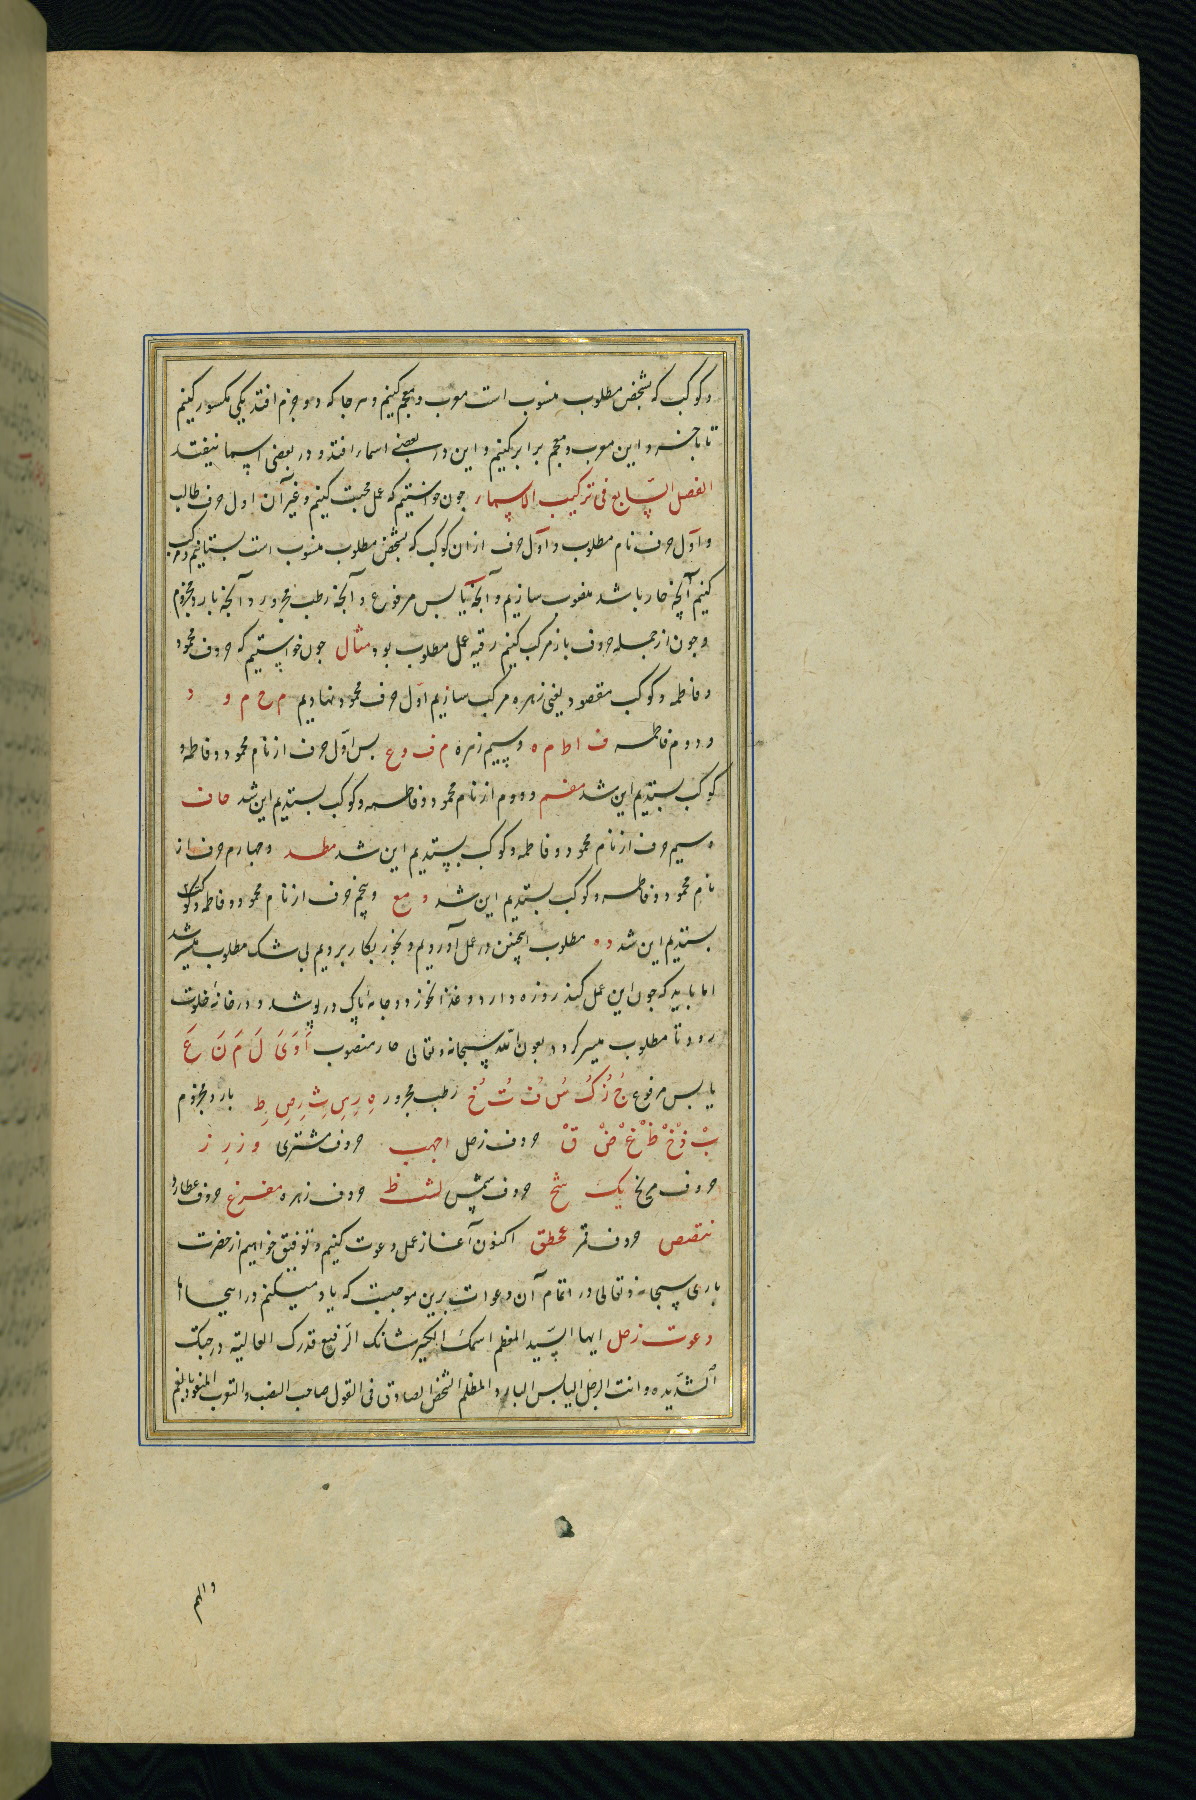 و کوکب که بشخص مطلوب منسوب است معرب و معجم کنیم و هر جا که دو جزم افتد یکی مکسور کنیم
تا باخر و این معرب و معجم برابر کنیم و این در بعضی اسما را افتد و در بعضی اسما نیفتد
الفصل السابع فی ترکیب الاسما جون خواستیم که عمل محبت کنیم و غیر آن اول حرف طالب
و اول حرف نام مطلوب و اول حرف از ان کوکب که بشخص مطلوب منسوب است بستانیم و مرکب
کنیم آنچه حار باشد منصوب سازیم و آنچه یابس مرفوع و آنچه رطب مجرور و آنچه بارد مجزوم
و جون از جمله حروف باز مرکب کنیم رقیه عمل مطلوب بود مثال جون خواستیم که حروف محمود
و فاطمه و کوکب مقصود یعنی زهره مرکب سازیم اول حرف محمود نهادیم م ح م و د
و دوم فاطمه ف ا ط م ه و سیم زهره م ف و ع بس اول حرف از نام محمود و فاطمه و
کوکب بستدیم این شد مفم و دوم از نام محمود و فاطمه و کوکب بستدیم این شد حاف
و سیم حرف از نام محمود و فاطمه و کوکب بستدیم این شد و چهارم حرف از
نام محمود و فاطمه و کوکب بستدیم این شد و مع و پنجم حرف از نام محمود و فاطمه و کوکب
بستدیم این شد ده مطلوب اینچنین در عمل آوردیم و بخور بکار بردیم بی شک مطلوب میسر شد
اما باید که جون این عمل کند روزه دارد و غذا نخورد و جامهٔ پاک در پوشد و در خانهٔ خلوت
رود تا مطلوب میسر کردد بعون الله سبحانه و تعالی حار منصوب اَ وَ یَ لَ مَ نَ عَ
یابس مرفوع جُ زُ کُ سُ فُ تُ خُ رطب مجرور هِ رِ سِ ثِ صِ طِ بارد مجزوم
بْ دْ خْ ظْ غْ ضْ قْ حروف زحل اجهب حروف مشتری و ز ر ز
حروف مریخ یک شخ حروف شمس لشظ حروف زهره مفرغ حروف عطارد
نتقص حروف قمر عحطق اکنون آغاز عمل دعوت کنیم و توفیق خواهیم از حضرت
باری سبحانه و تعالی در اتمام آن دعوات برین موجبست که یاد میکنم در اینجاها
دعوت زحل ایها السید المعظم اسمک الکبیر شانک الرفیع قدرک العالیة درجتک
الشدیده و انت الزحل الیابس البارد المظلم الشخص الصادق فی القول صاحب الغضب و التوب
والهم